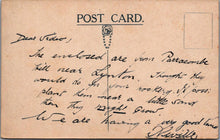 POST CARD.
Dear
The enclosed are from Parracombe
hill near Lynton. I thought they
would do for your rockery. If you
plant them near a little
then they might grow.
We are having a very good